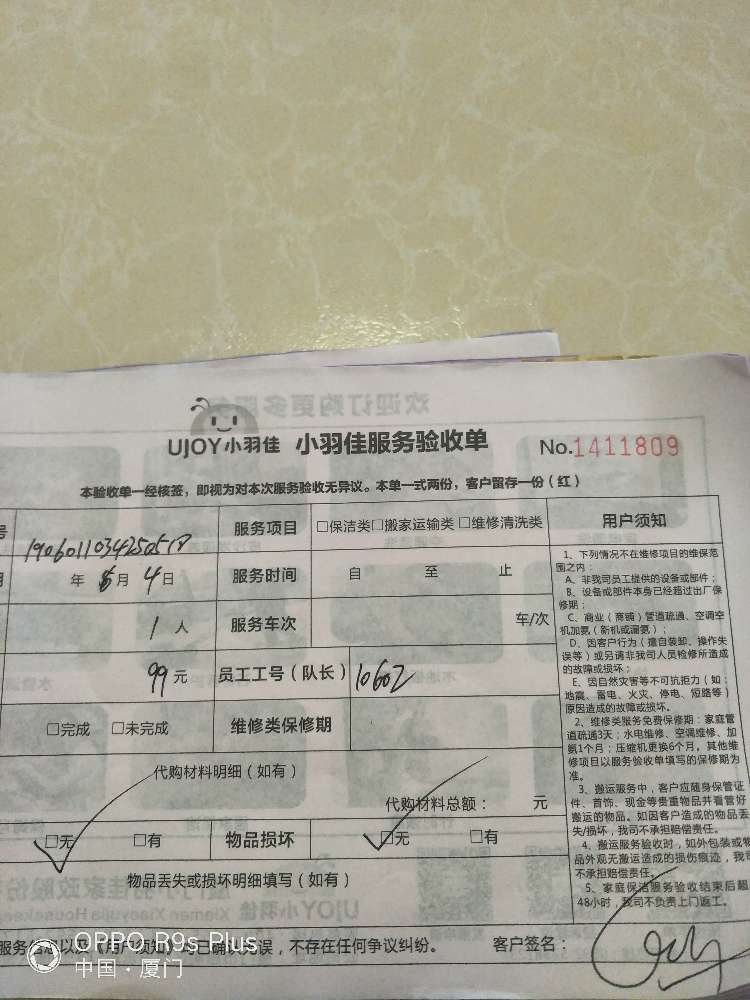 UJOY小羽佳 小羽佳服务验收单 No.1411809
本验收单一经核签，即视为对本次服务验收无异议。本单一式两份，客户留存一份（红）
号
服务项目 □保洁类□搬家运输类□维修清洗类
年 6月 4日 服务时间 自 至 止
1人 服务车次 车/次
99元 员工工号（队长） 10602
□完成 □未完成 维修类保修期
代购材料明细（如有）
代购材料总额： 元
□无 □有 物品损坏 □无 □有
物品丢失或损坏明细填写（如有）
用户须知
1、下列情况不在维修项目的维保范
围之内：
A、非我司员工提供的设备或部件；
B、设备或部件本身已经超过出厂保
修期；
C、商业（商铺）管道疏通、空调空
机加氨（新机或漏氨）；
D、因客户行为（擅自装卸、操作失
误等）或另请非我司人员检修所造成
的故障或损坏；
E、因自然灾害等不可抗拒力（如：
地震、雷电、火灾、停电、短路等）
原因造成的故障或损坏。
2、维修类服务免费保修期：家庭管
道疏通3天；水电维修、空调维修、加
氨1个月；压缩机更换6个月，其他维
修项目以服务验收单填写的保修期为
准。
3、搬运服务中，客户应随身保管证
件、首饰、现金等贵重物品并看管好
搬运的物品。如因客户造成的物品丢
失/损坏，我司不承担赔偿责任。
4、搬运服务验收时，如外包装或物
品外观无搬运造成的损伤痕迹，我
不承担赔偿责任。
5、家庭保洁服务验收结束后超
48小时，我司不负责上门返工。
服务信息以及《用户须知》均已确认无误，不存在任何争议纠纷。 客户签名：
欢迎订购更多服务
OPPO R9s Plus
中国·厦门